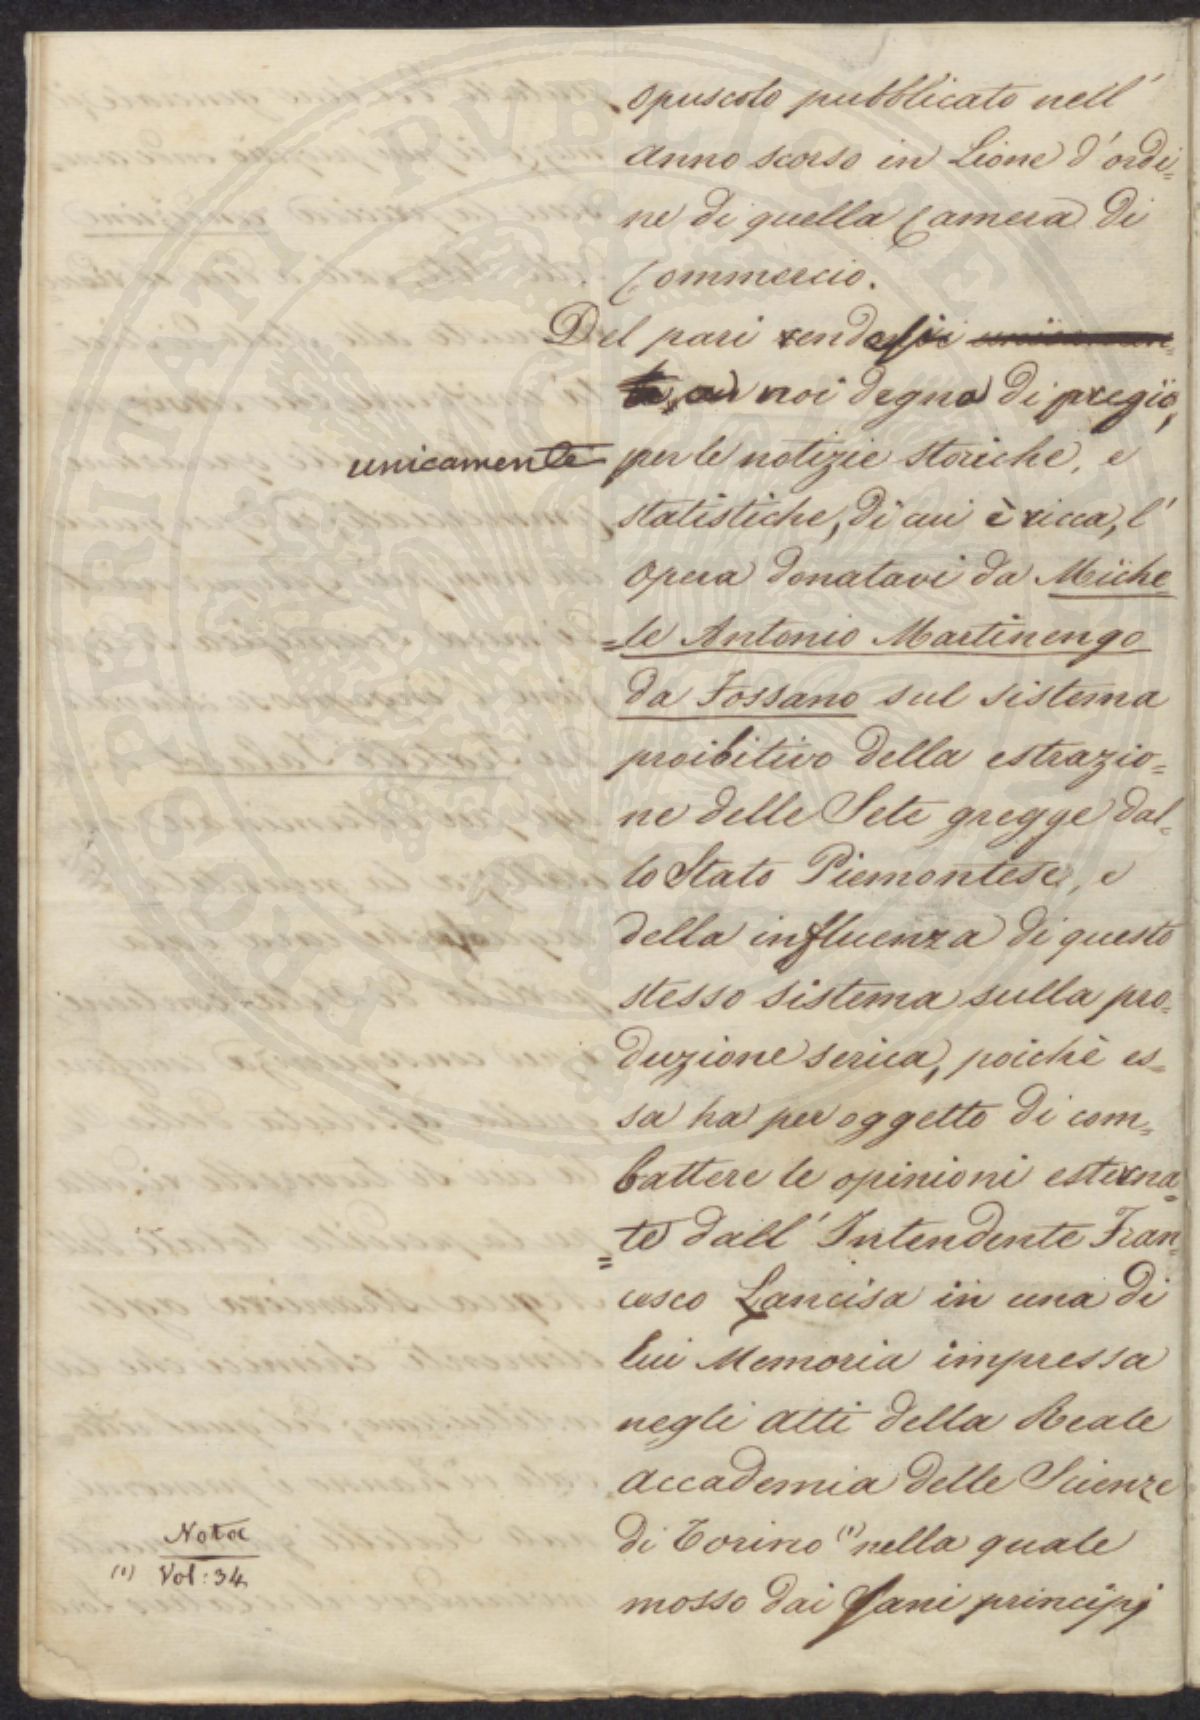 opuscolo pubblicato nell'
anno scorso in Lione d'ordi=
ne di quella Camera di
Commercio.
Del pari rendesi unicamen=
te, a noi degna di pregio,
unicamente per le notizie storiche, e
statistiche, di cui è ricca, l'
opera donatavi da Miche=
=le Antonio Martinengo
da Fossano sul sistema
proibitivo della estrazio=
ne delle Sete gregge dal=
lo Stato Piemontese, e
della influenza di questo
stesso sistema sulla pro=
duzione serica, poichè es=
sa ha per oggetto di com=
battere le opinioni esterna=
=te dall'Intendente Fran=
cesco Lancisa in una di
lui Memoria impressa
negli atti della Reale
Accademia delle Scienze
di Torino (1) nella quale
mosso dai sani principj
Nota
(1) Vol: 34
PROSPERITATI PUBLICAE AUGENDAE